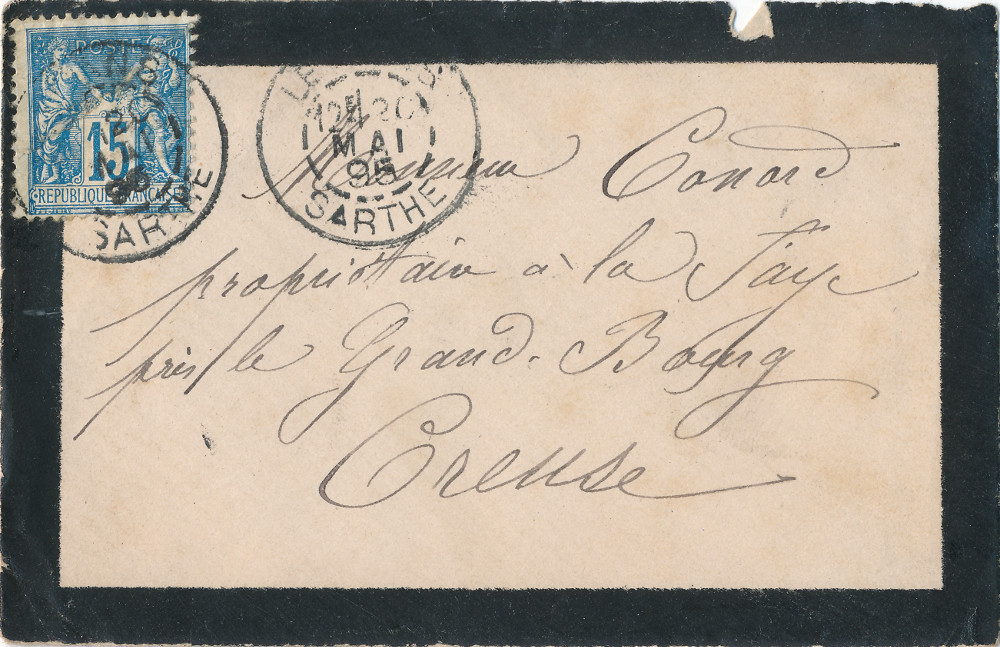 POSTE
15
REPUBLIQUE FRANCAISE
SARTHE
LE
12E 20
MAI
95
SARTHE
Monsieur Conord
propriétaire à la Faye
près le Grand-Bourg
Creuse